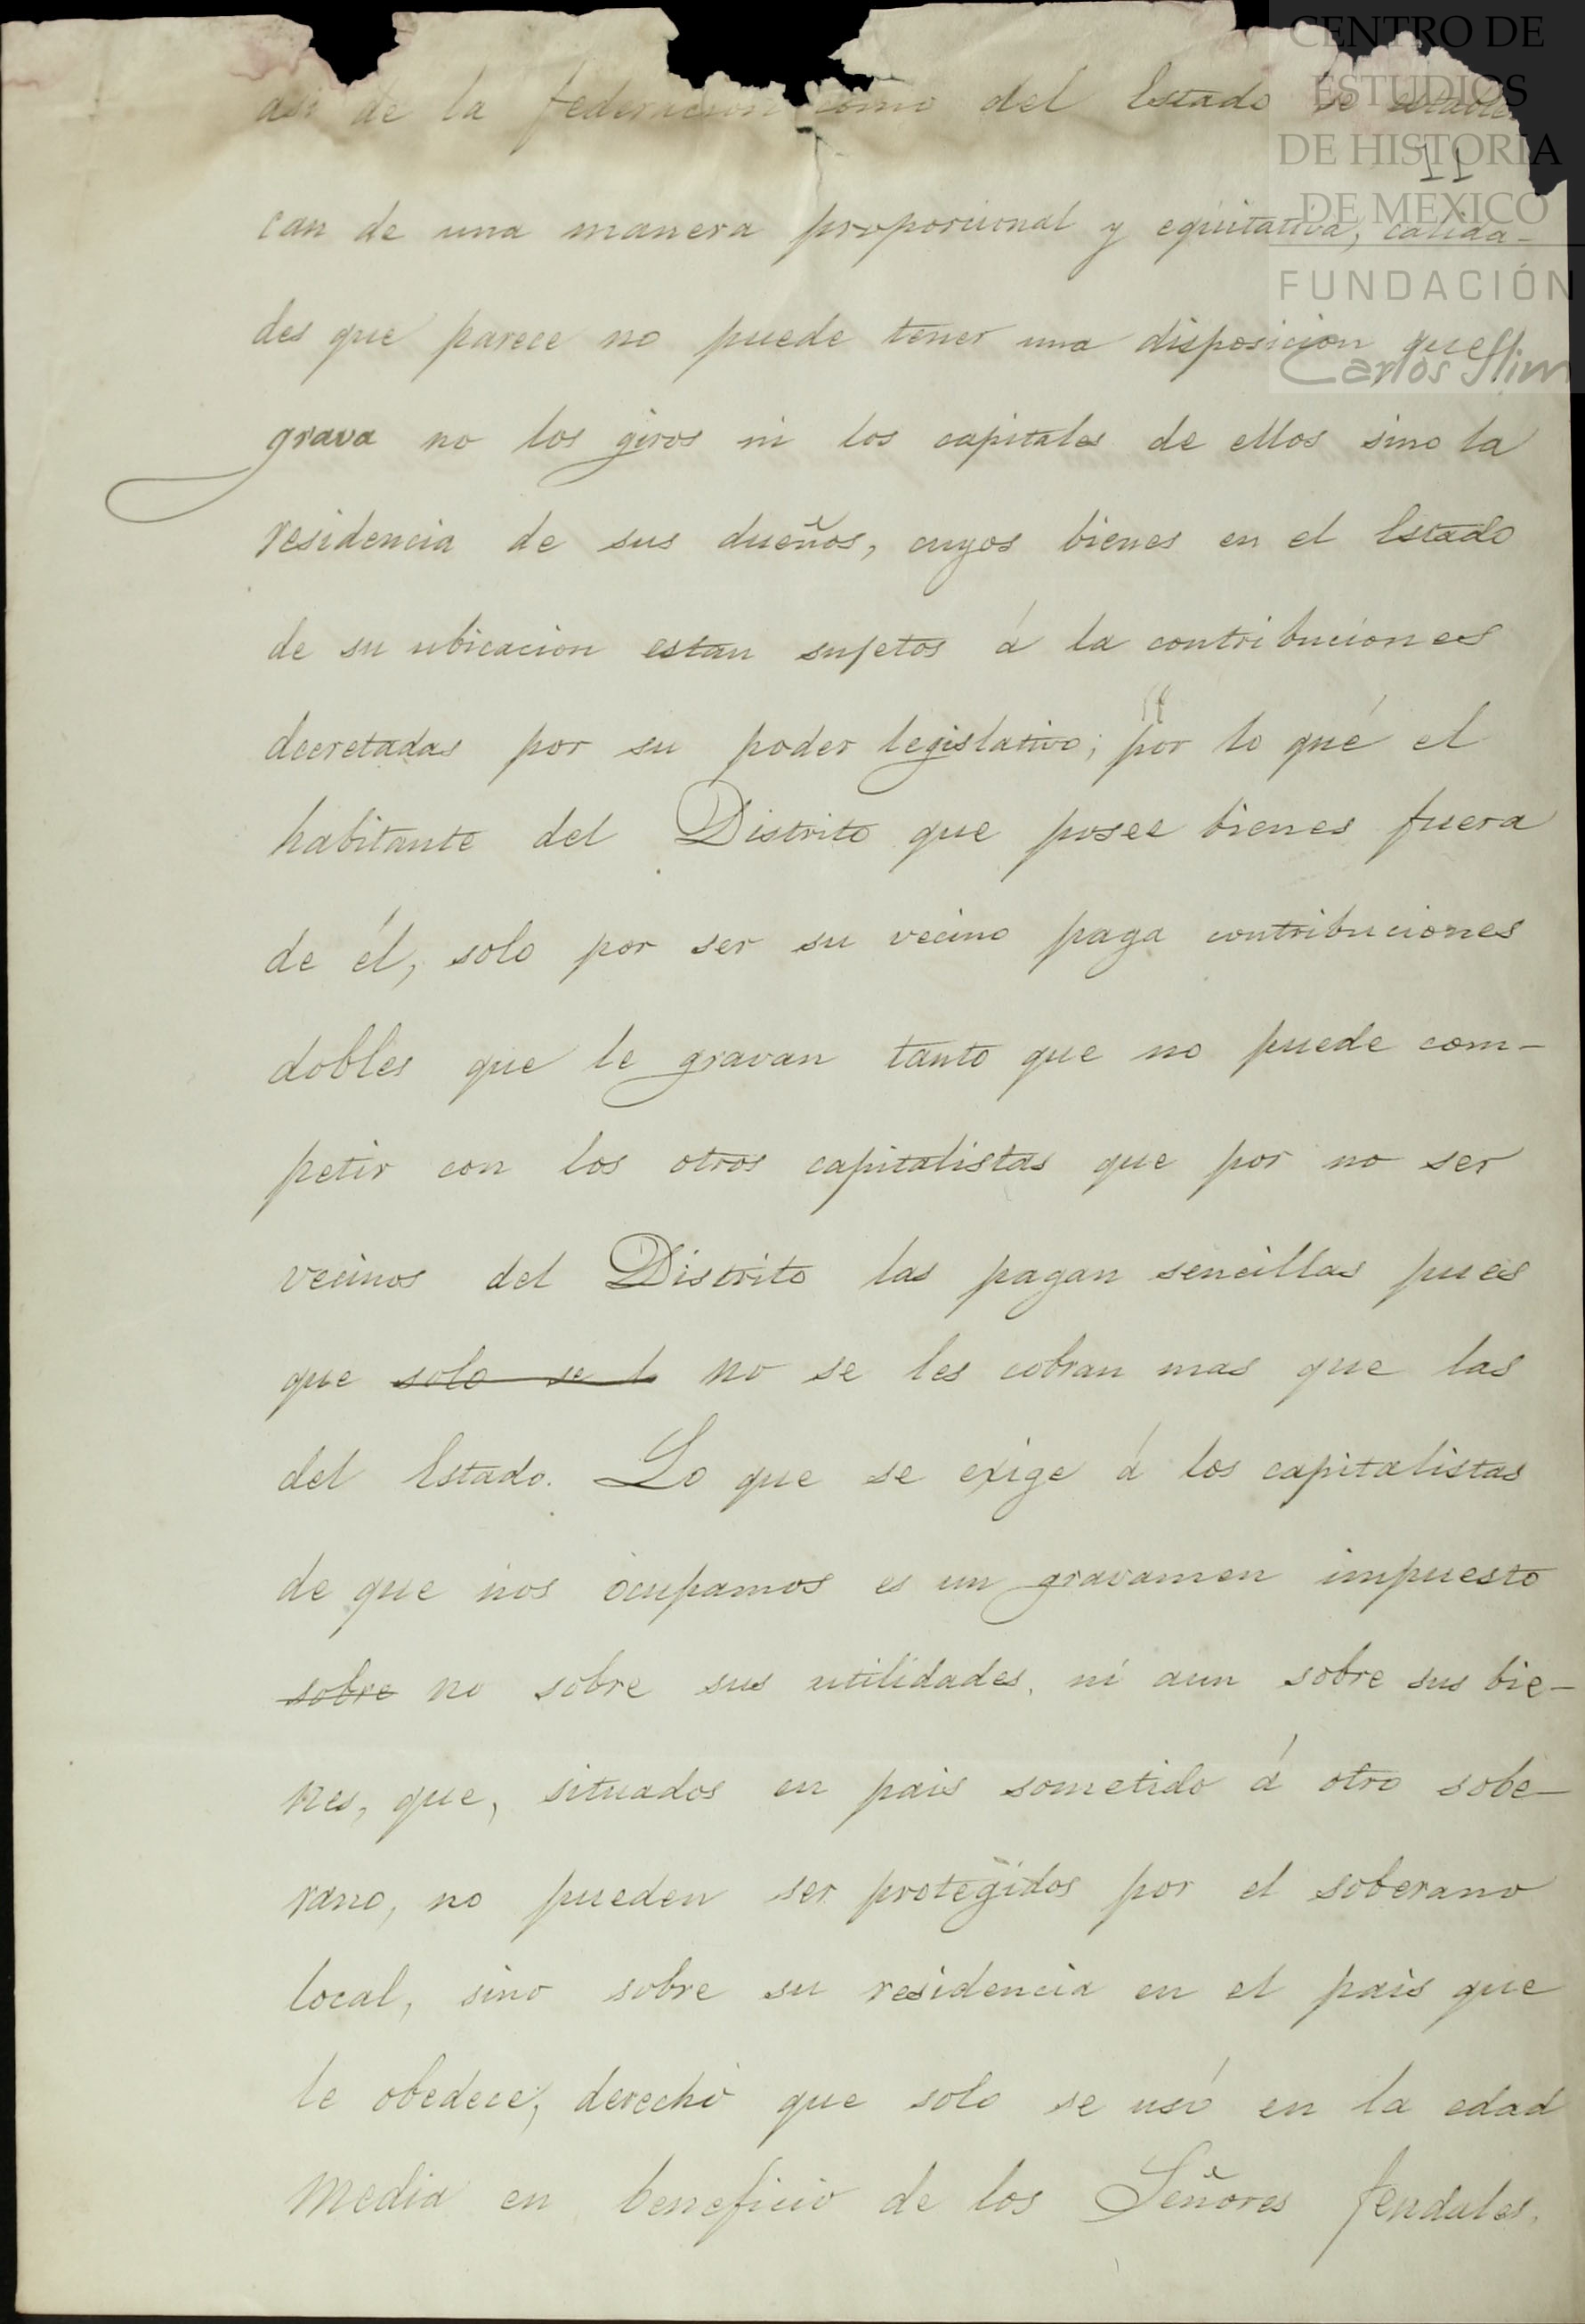 asi de la federacion como del Estado se estable
11
can de una manera proporcional y equitativa, calida-
des que parece no puede tener una disposicion que
grava no los giros ni los capitales de ellos sino la
residencia de sus dueños, cuyos bienes en el Estado
de su ubicacion estan sujetos á la contribuciones
decretadas por su poder legislativo; por lo qué el
habitante del Distrito que posee bienes fuera
de él, solo por ser su vecino paga contribuciones
dobles que le gravan tanto que no puede com-
petir con los otros capitalistas que por no ser
vecinos del Distrito las pagan sencillas pues
que solo se l no se les cobran mas que las
del Estado. Lo que se exige á los capitalistas
de que nos ocupamos es un gravamen impuesto
sobre no sobre sus utilidades, ni aun sobre sus bie-
nes, que, situados en pais sometido á otro sobe-
rano, no pueden ser protegidos por el soberano
local, sino sobre su residencia en el pais que
le obedece, derecho que solo se usó en la edad
media en beneficio de los Señores feudales.
CENTRO DE
ESTUDIOS
DE HISTORIA
DE MEXICO
FUNDACIÓN
Carlos Slim